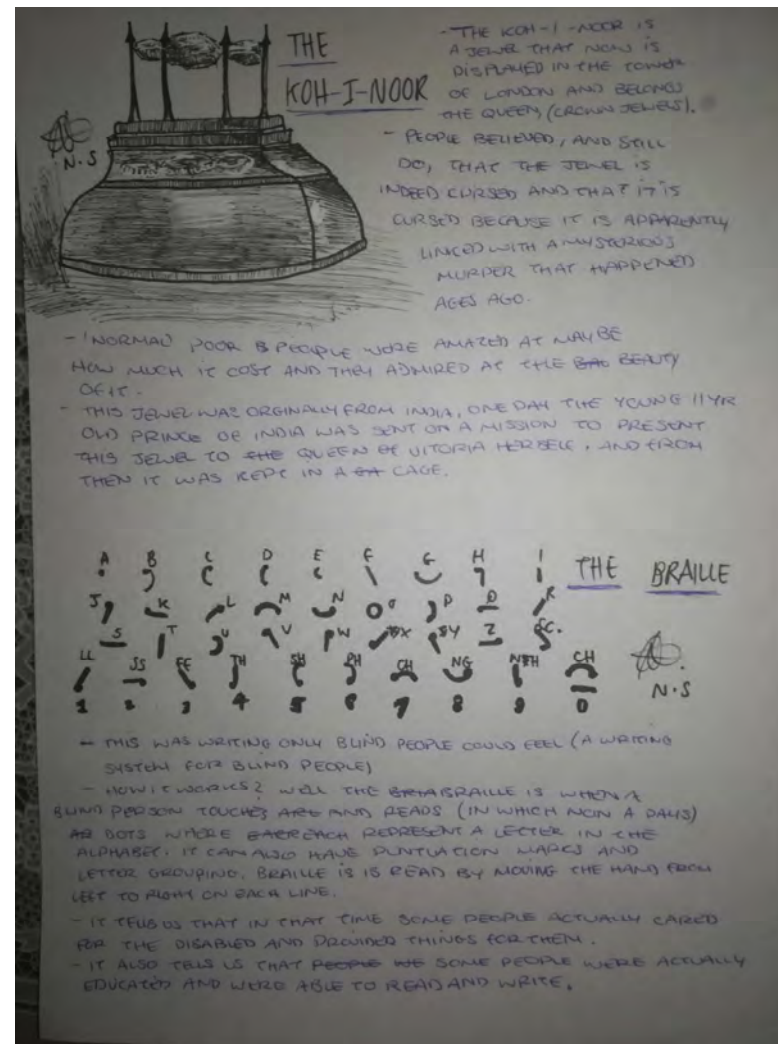 THE
KOH-I-NOOR
- THE KOH-I-NOOR IS
A JEWEL THAT NOW IS
DISPLAYED IN THE TOWER
OF LONDON AND BELONGS
THE QUEEN (CROWN JEWELS).
- PEOPLE BELIEVED, AND STILL
DO, THAT THE JEWEL IS
INDEED CURSED AND THAT IT IS
CURSED BECAUSE IT IS APPARENTLY
LINKED WITH A MYSTERIOUS
MURDER THAT HAPPENED
AGES AGO.
N.S
- 'NORMAL' POOR PEOPLE WERE AMAZED AT MAYBE
HOW MUCH IT COST AND THEY ADMIRED AT THE BEAUTY
OF IT.
- THIS JEWEL WAS ORGINALLY FROM INDIA, ONE DAY THE YOUNG 11YR
OLD PRINCE OF INDIA WAS SENT ON A MISSION TO PRESENT
THIS JEWEL TO THE QUEEN OF VITORIA HERSELF, AND FROM
THEN IT WAS KEPT IN A CAGE.
THE BRAILLE
A B C D E F G H I
J K L M N O P Q R
S T U V W X Y Z &C.
LL SS FF TH SH PH CH NG NTH GH
1 2 3 4 5 6 7 8 9 0
N.S
- THIS WAS WRITING ONLY BLIND PEOPLE COULD FEEL (A WRITING
SYSTEM FOR BLIND PEOPLE)
- HOW IT WORKS? WELL THE BRAILLE IS WHEN A
BLIND PERSON TOUCHES AND READS (IN WHICH NOW A DAYS)
DOTS WHERE EACH REPRESENT A LETTER IN THE
ALPHABET. IT CAN ALSO HAVE PUNTUATION MARKS AND
LETTER GROUPING. BRAILLE IS IS READ BY MOVING THE HAND FROM
LEFT TO RIGHT ON EACH LINE.
- IT TELLS US THAT IN THAT TIME SOME PEOPLE ACTUALLY CARED
FOR THE DISABLED AND PROVIDED THINGS FOR THEM.
- IT ALSO TELLS US THAT SOME PEOPLE WERE ACTUALLY
EDUCATED AND WERE ABLE TO READ AND WRITE.